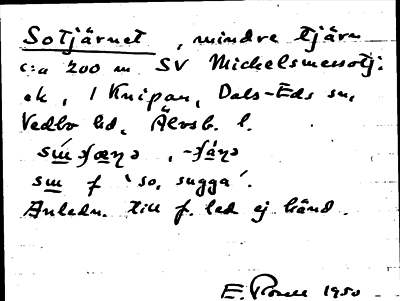 Sotjärnet, mindre tjärn
c:a 200 m SV Mickelsmessotj:
ek, i Knipan, Dals-Eds sn,
Vedbo hd, Älvsb. l.
sm f 'so, sugga'.
Anledn. till f. led ej känd.
E. 1950